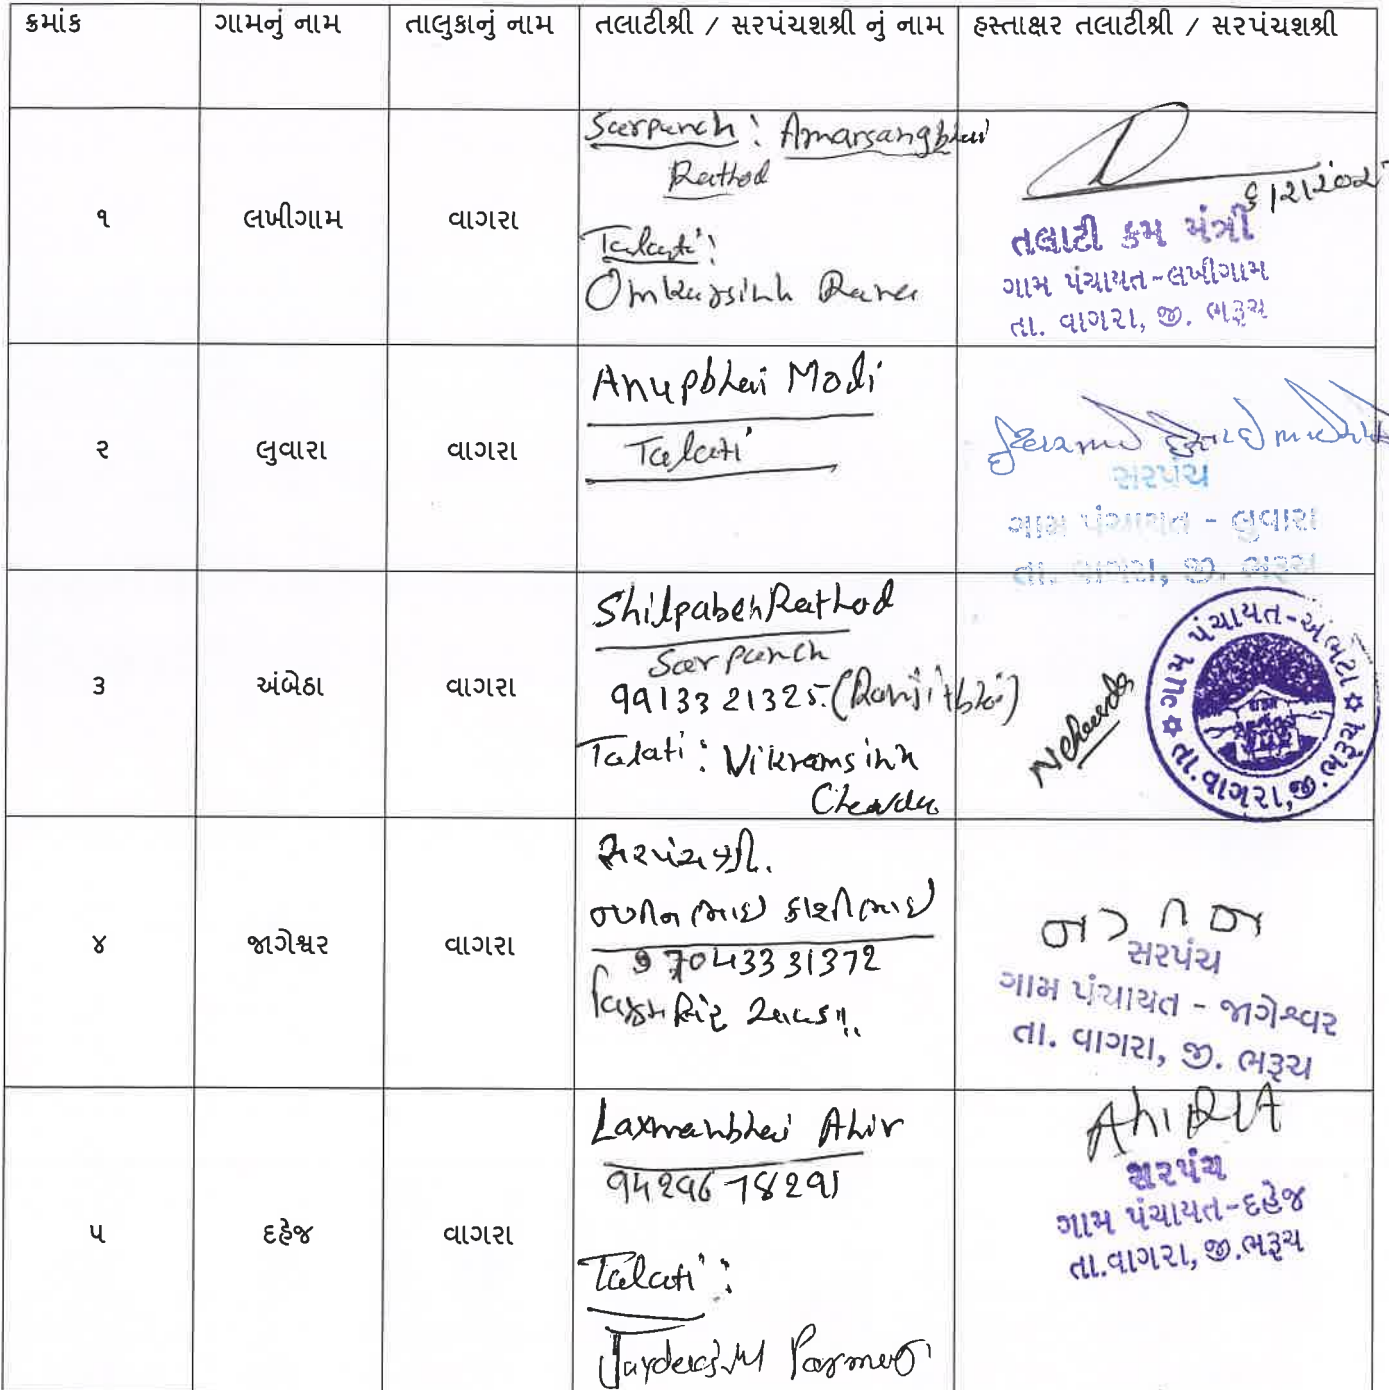 ક્રમાંક ગામનું નામ તાલુકાનું નામ તલાટીશ્રી / સરપંચશશ્રી નું નામ હસ્તાક્ષર તલાટીશ્રી / સરપંચશશ્રી
૧ લખીગામ વાગરા
Sarpanch : Amarsangbhai
Rathod
Talati :
Omkarsinh Rana
તલાટી કમ મંત્રી
ગામ પંચાયત-લખીગામ
તા. વાગરા, જી. ભરૂચ
૨ લુવારા વાગરા
Anupbhai Modi
Talati
સરપંચ
ગામ પંચાયત - લુવારા
તા. વાગરા, જી. ભરૂચ
૩ અંબેઠા વાગરા
Shilpaben Rathod
Sarpanch
9913321325. (Ranjitbhai)
Talati : Vikramsinh
Chavda
NChavda
ગામ પંચાયત-અંભેટા
તા.વાગરા,જી.ભરૂચ
૪ જાગેશ્વર વાગરા
સરપંચશ્રી.
કાશીભાઇ
વિક્રમસિંહ ચાવડા
સરપંચ
ગામ પંચાયત - જાગેશ્વર
તા. વાગરા, જી. ભરૂચ
૫ દહેજ વાગરા
Laxmanbhai Ahir
9429678291
Talati :
Jaydevsinh Parmar
AhiRLA
સરપંચ
ગામ પંચાયત-દહેજ
તા.વાગરા, જી.ભરૂચ